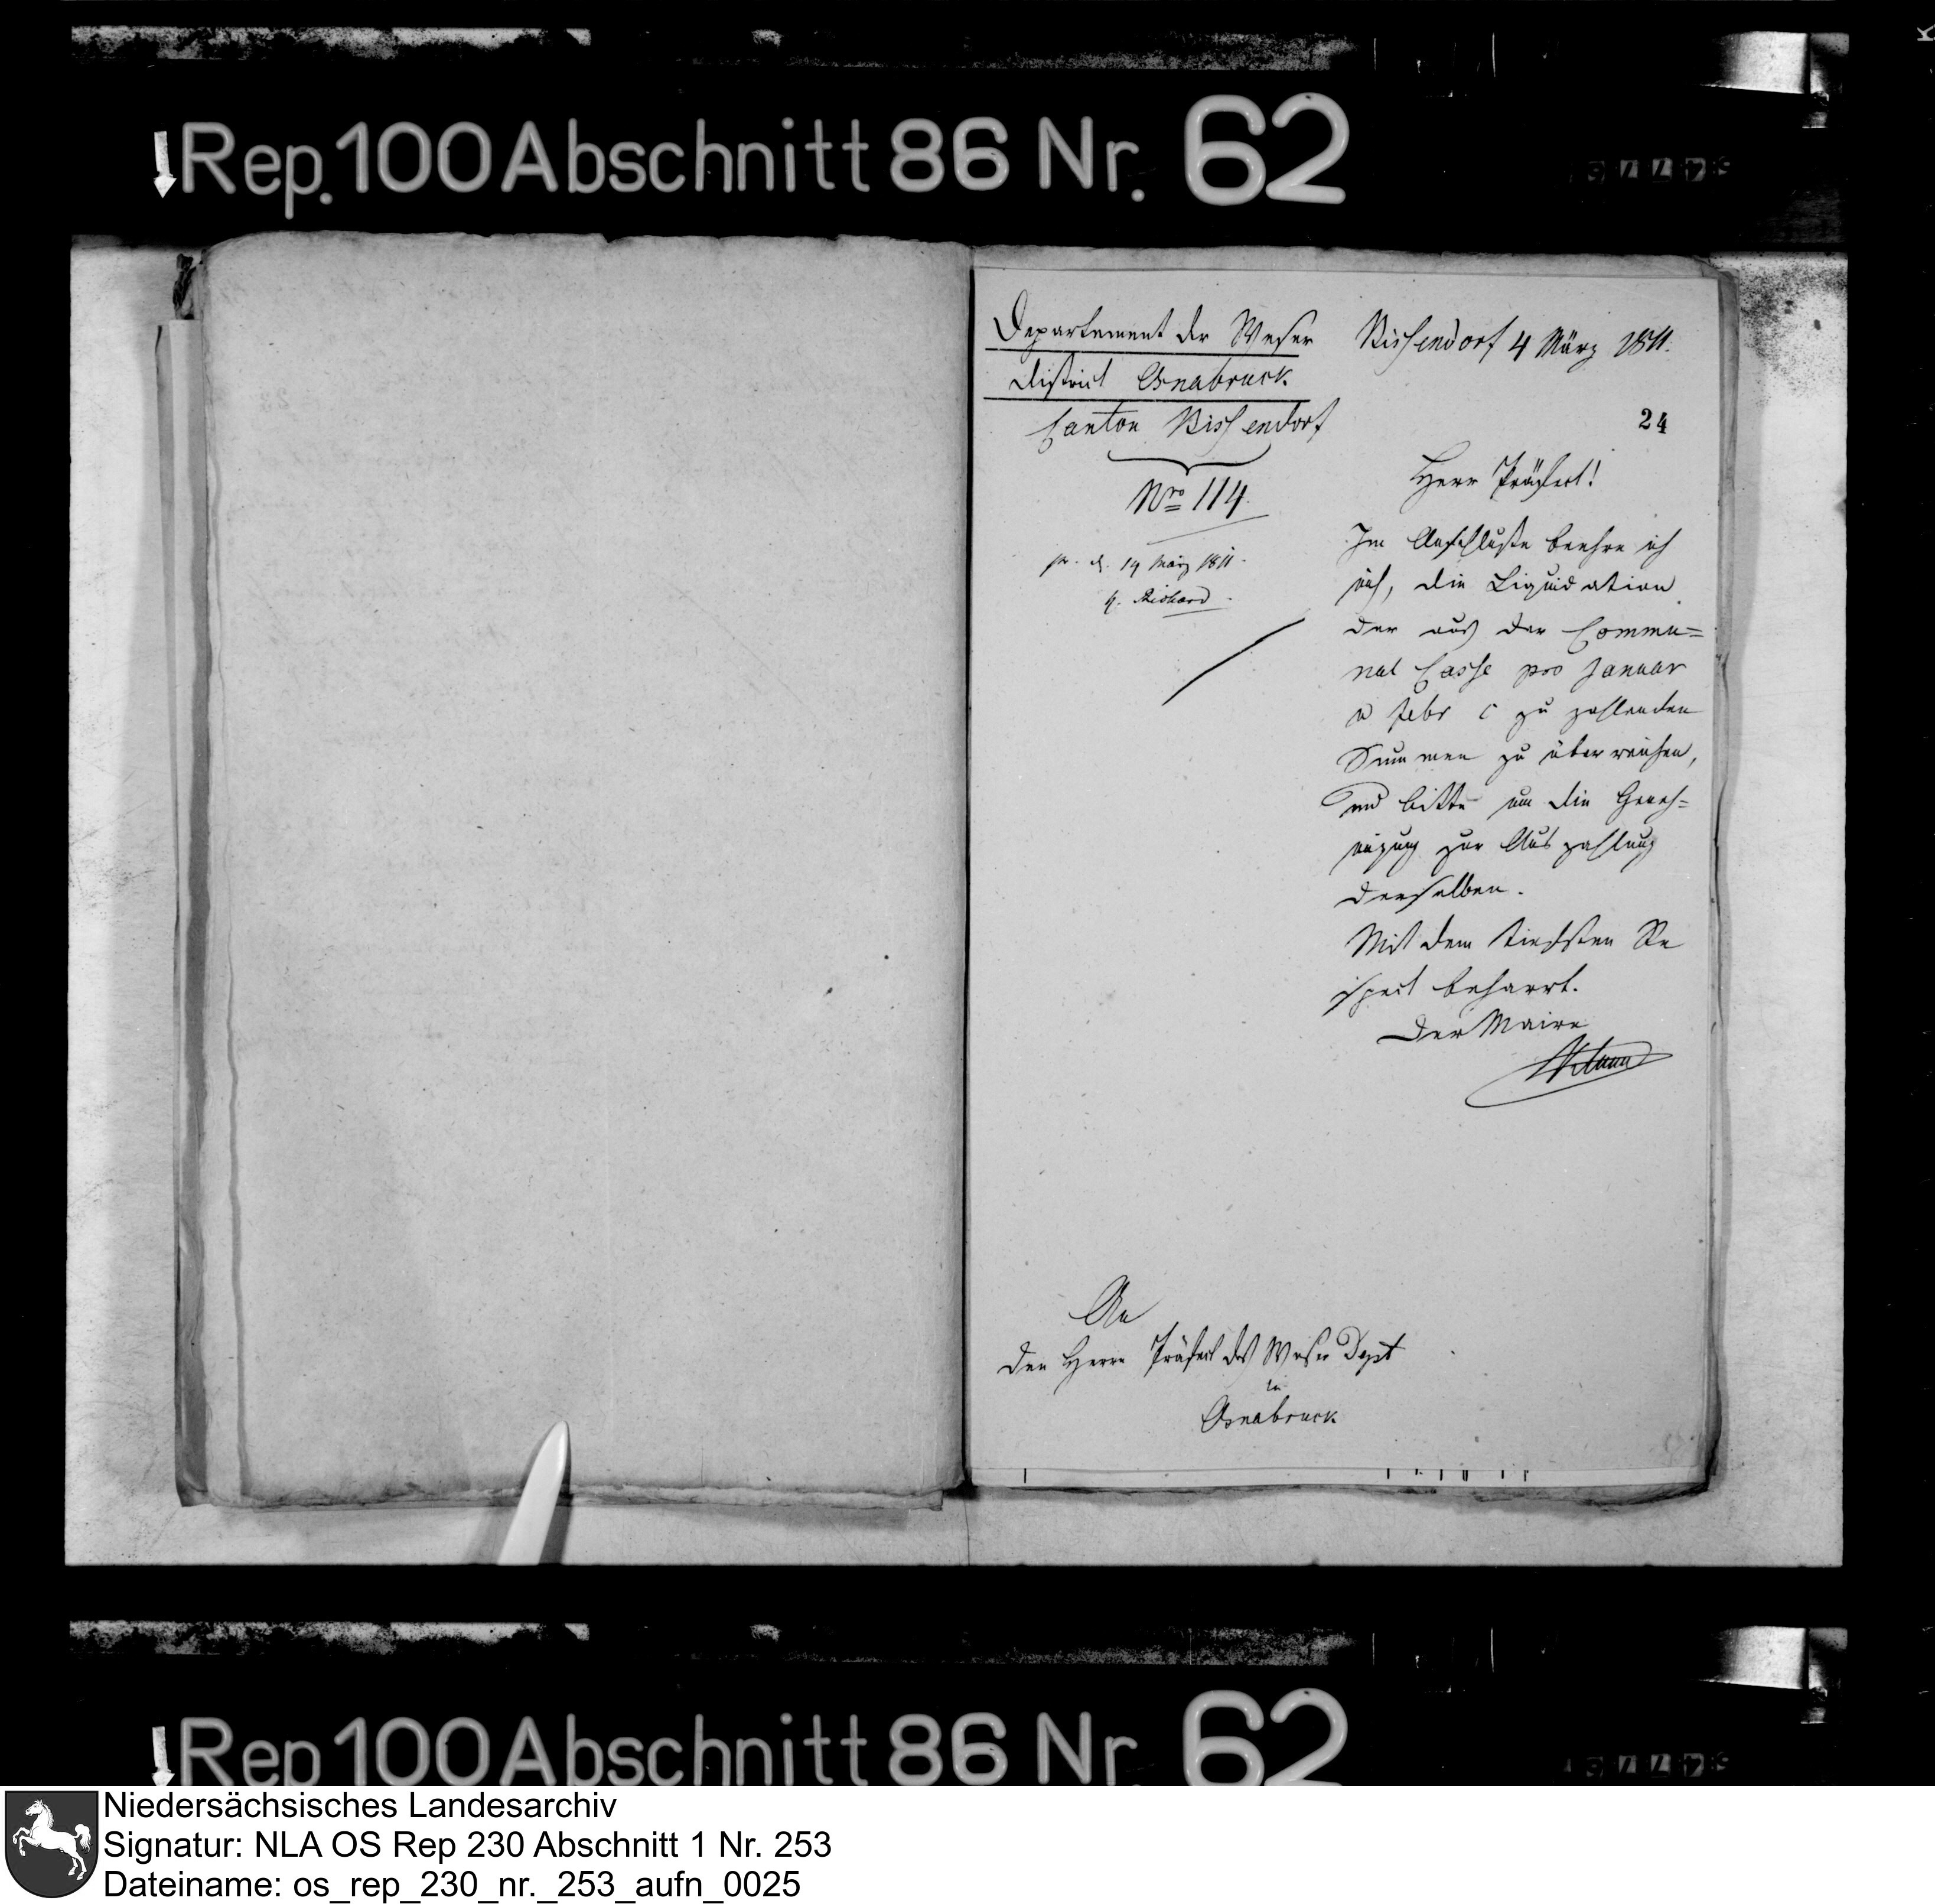 Rep. 100 Abschnitt 86 Nr. 62
Departement der Weser
District Osnabruck
Canton Bissendorf
Nro 114.
pr. d. 19 März 1811.
Bissendorf 4 März 1811.
24
Herr Präfect!
Im Anschlusse beehre ich
mich, die Liquidation
der aus der Commu=
nal Casse pro Januar
u Febr c zu zahlenden
Summen zu überreichen,
und bitte um die Geneh=
migung zur Auszahlung
derselben.
Mit dem tiefsten Re
spect beharrt.
Der Maire
An
den Herrn Präfect des Weser Dept
in
Osnabruck
Rep 100 Abschnitt 86 Nr. 62
Niedersächsisches Landesarchiv
Signatur: NLA OS Rep 230 Abschnitt 1 Nr. 253
Dateiname: os_rep_230_nr._253_aufn_0025